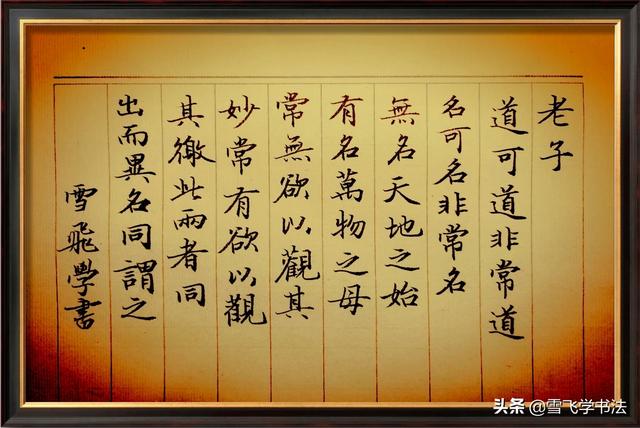 老子
道可道非常道
名可名非常名
無名天地之始
有名萬物之母
常無欲以觀其
妙常有欲以觀
其徼此兩者同
出而異名同謂之
雪飛學書
头条 @雪飞学书法